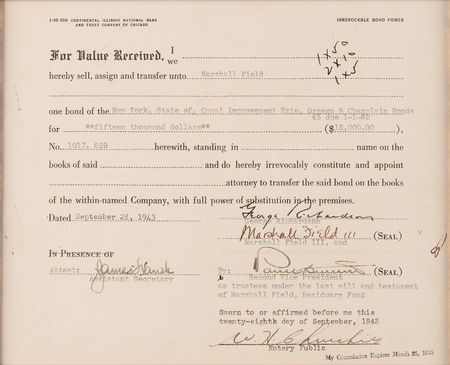 1-10-100 CONTINENTAL ILLINOIS NATIONAL BANK
AND TRUST COMPANY OF CHICAGO
IRREVOCABLE BOND POWER
For Value Received, I
we
1 x 50
2 x 10
1 x 5
hereby sell, assign and transfer unto Marshall Field
one bond of the New York, State of, Canal Improvement Erie, Oswego & Champlain Bonds
4% due 1-1-62
for **fifteen thousand dollars** ($15,000.00),
No. 1017, 659 herewith, standing in name on the
books of said and do hereby irrevocably constitute and appoint
attorney to transfer the said bond on the books
of the within-named Company, with full power of substitution in the premises.
Dated September 28, 1943
George Richardson
George Richardson
Marshall Field III (SEAL)
Marshall Field III, and
IN PRESENCE OF
Attest:
Assistant Secretary
By: (SEAL)
Second Vice President
as trustees under the last will and testament
of Marshall Field, Residuary Fund
Sworn to or affirmed before me this
twenty-eighth day of September, 1943
Notary Public
My Commission Expires March 25, 1945